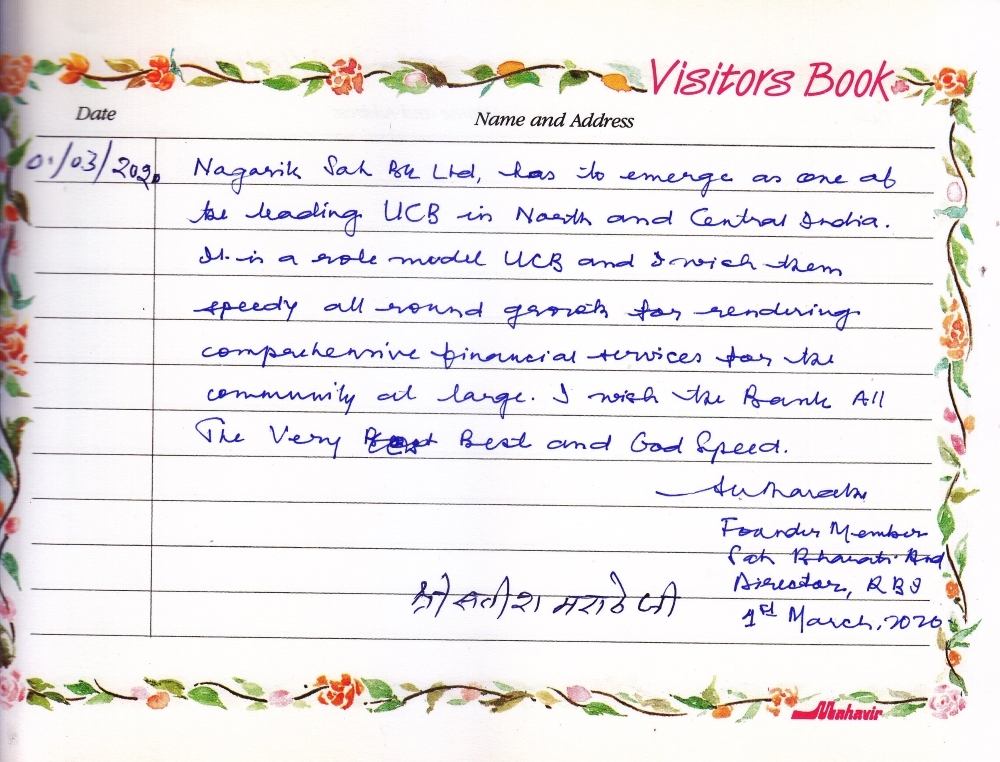 Visitors Book
Date
Name and Address
01/03/2020
Nagarik Sah Bk Ltd, has to emerge as one of
the leading UCB in North and Central India.
It is a role model UCB and I wish them
speedy all round growth for rendering
comprehensive financial services for the
community at large. I wish the Bank All
The Very Best and God Speed.
Founder Member
Sah Bharati And
Director, RBI
1st March, 2020
श्री सतीश मराठे जी
Mahavir